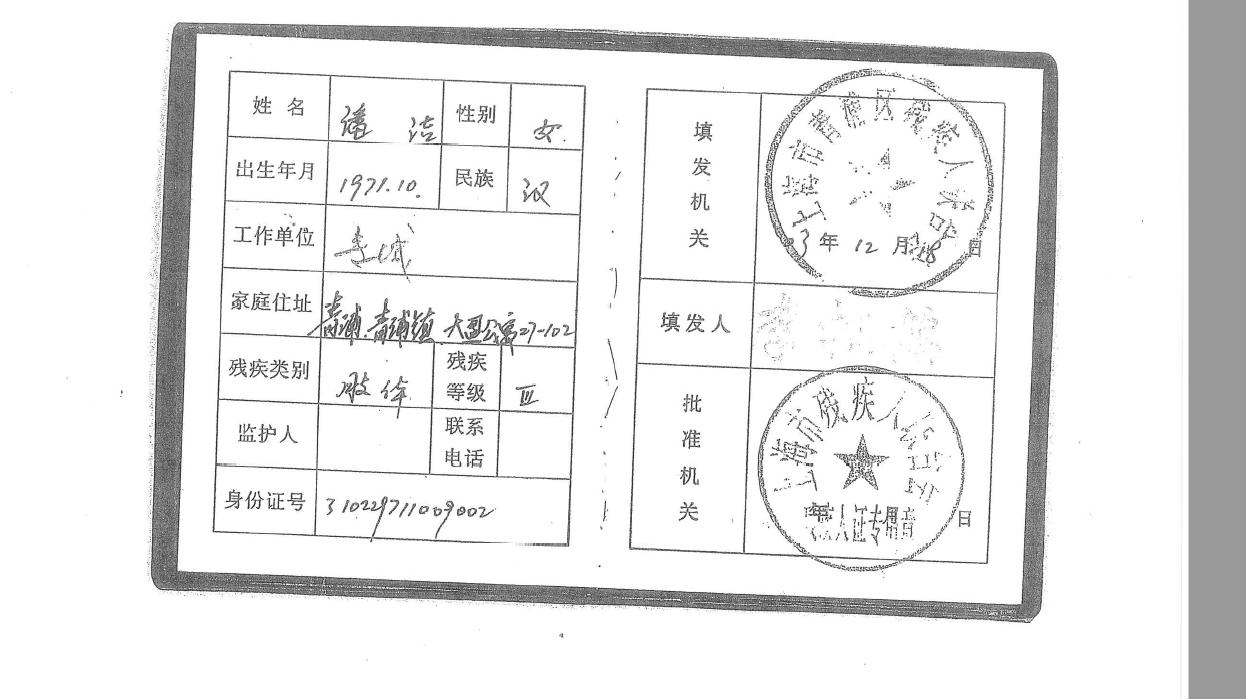 姓 名 潘 洁 性别 女
出生年月 1971.10. 民族 汉
工作单位
家庭住址 青浦.青浦镇 大盈公寓27-102
残疾类别 肢体 残疾等级 Ⅲ
监护人 联系电话
身份证号 310229711009002
填发机关
上海市青浦区残疾人联合会
3年 12 月 18 日
填发人
批准机关
上海市残疾人联合会
残疾人证专用章
年 日